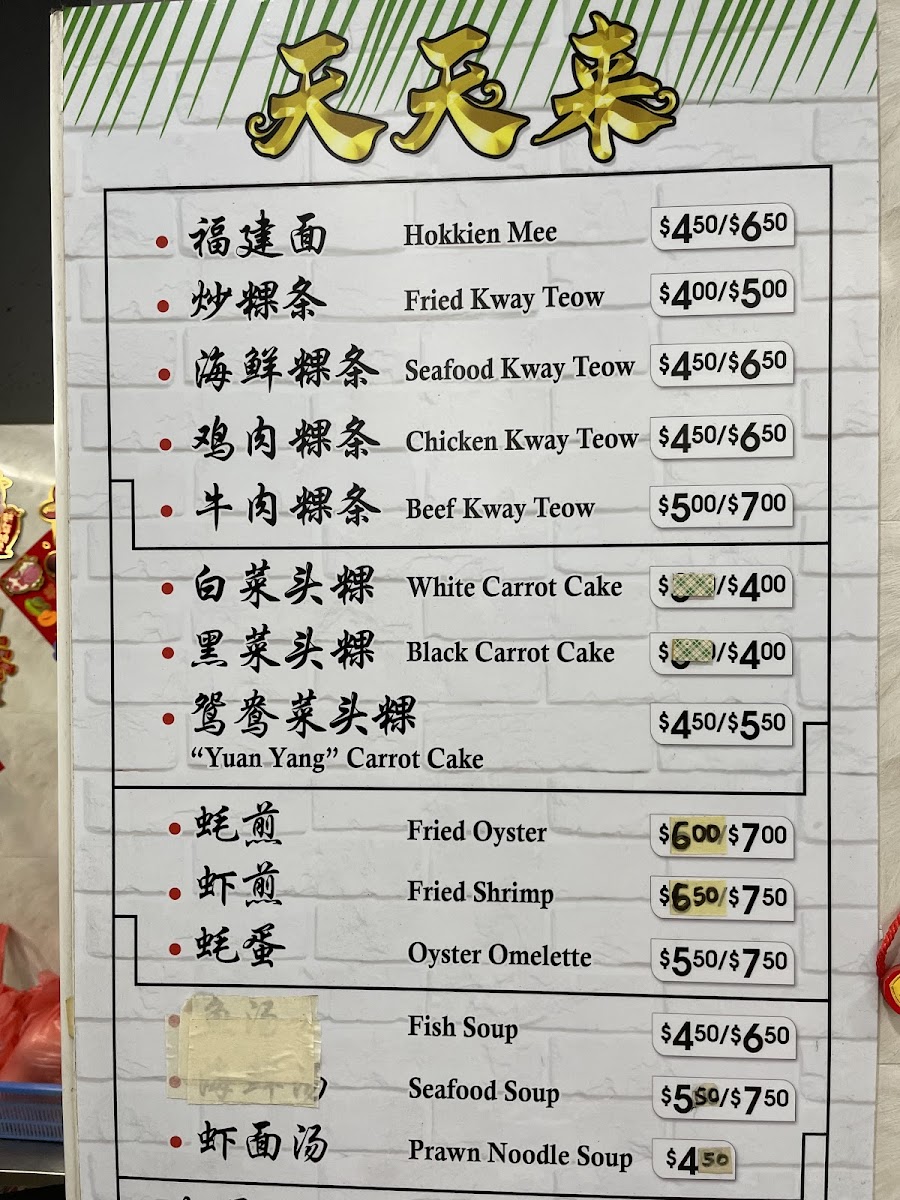 天天来
福建面 Hokkien Mee $4.50/$6.50
炒粿条 Fried Kway Teow $4.00/$5.00
海鲜粿条 Seafood Kway Teow $4.50/$6.50
鸡肉粿条 Chicken Kway Teow $4.50/$6.50
牛肉粿条 Beef Kway Teow $5.00/$7.00
白菜头粿 White Carrot Cake $ /$4.00
黑菜头粿 Black Carrot Cake $ /$4.00
鸳鸯菜头粿 $4.50/$5.50
“Yuan Yang” Carrot Cake
蚝煎 Fried Oyster $6.00/$7.00
虾煎 Fried Shrimp $6.50/$7.50
蚝蛋 Oyster Omelette $5.50/$7.50
Fish Soup $4.50/$6.50
Seafood Soup $5.50/$7.50
虾面汤 Prawn Noodle Soup $4.50